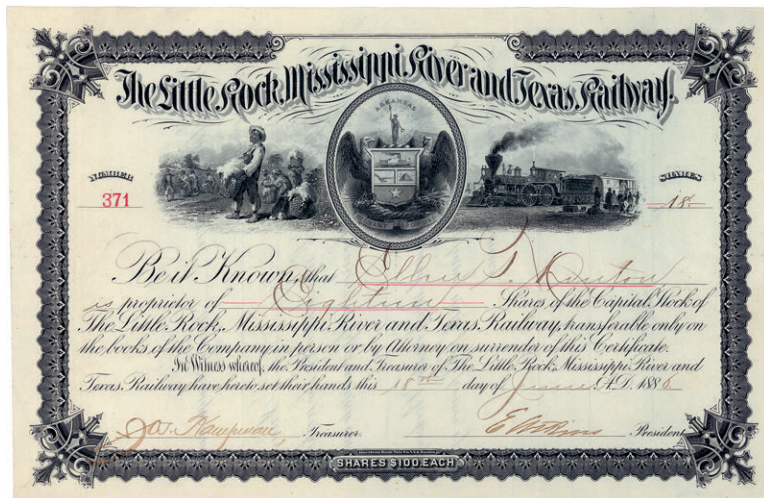 The Little Rock, Mississippi River and Texas Railway.
ARKANSAS
NUMBER
SHARES
371
18
Be it Known, that Ellen T.
is proprietor of Eighteen Shares of the Capital Stock of
The Little Rock, Mississippi River and Texas Railway, transferable only on
the books of the Company in person or by Attorney on surrender of this Certificate.
In Witness whereof, the President and Treasurer of The Little Rock, Mississippi River and
Texas Railway have hereto set their hands this 18th day of June A.D. 1886
Treasurer.
President
SHARES $100 EACH